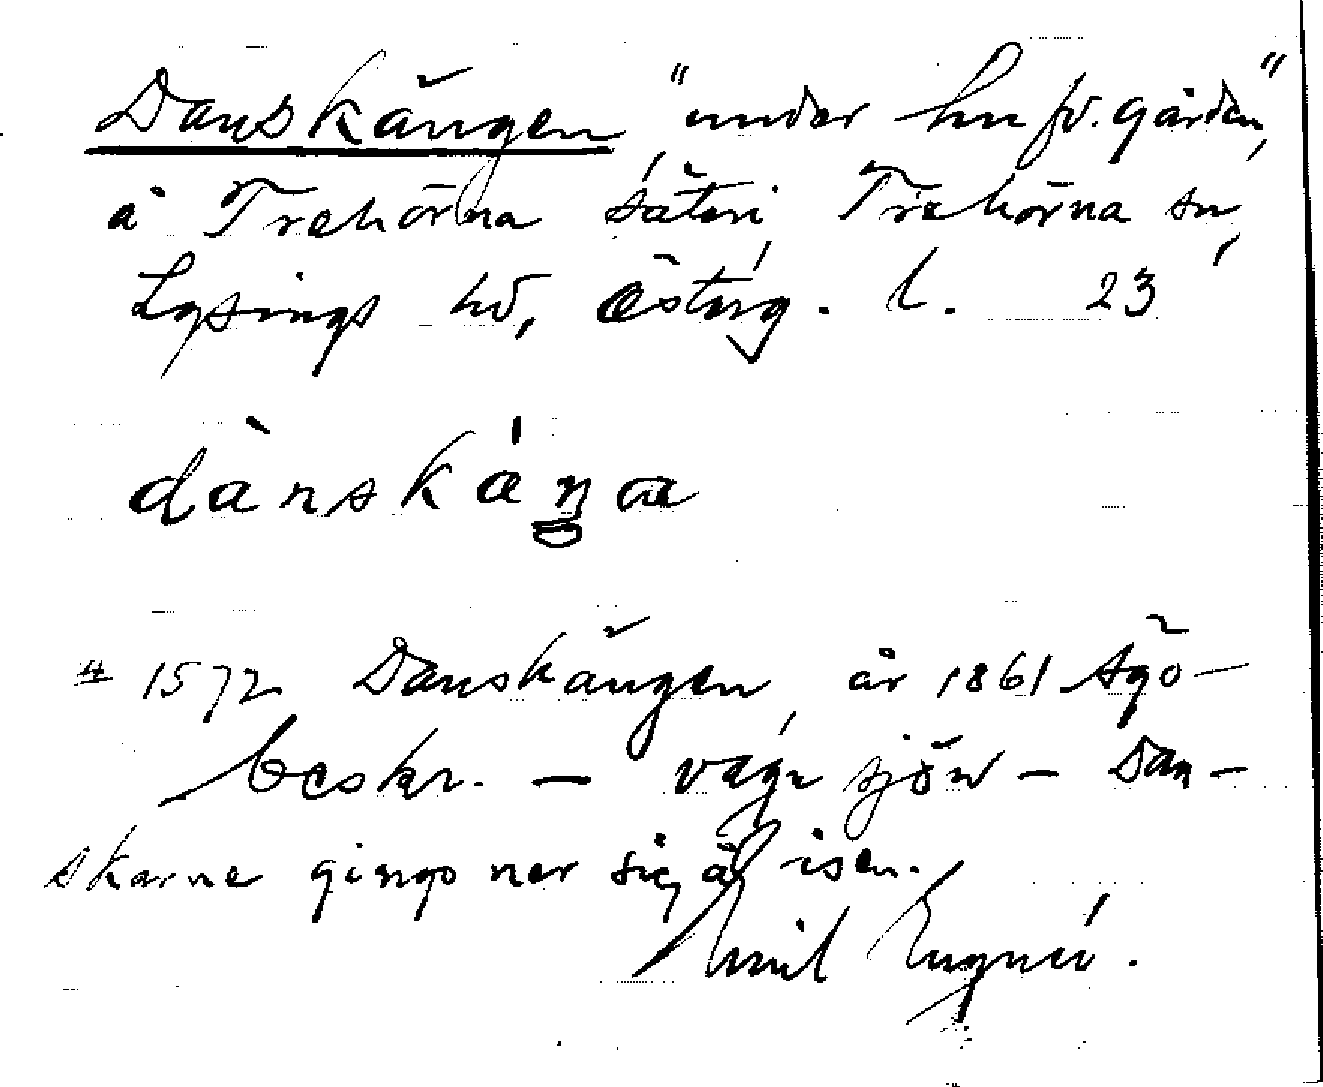 Danskängen, "under hufv.gården",
å Trehörna säteri, Trehörna sn,
Lysings hd, Österg. l. 23
dànskáŋa
# 1572 Danskängen, år 1861 Ägo-
beskr. – väg sjön – Dan-
skarne gingo ner sig å isen.
Emil